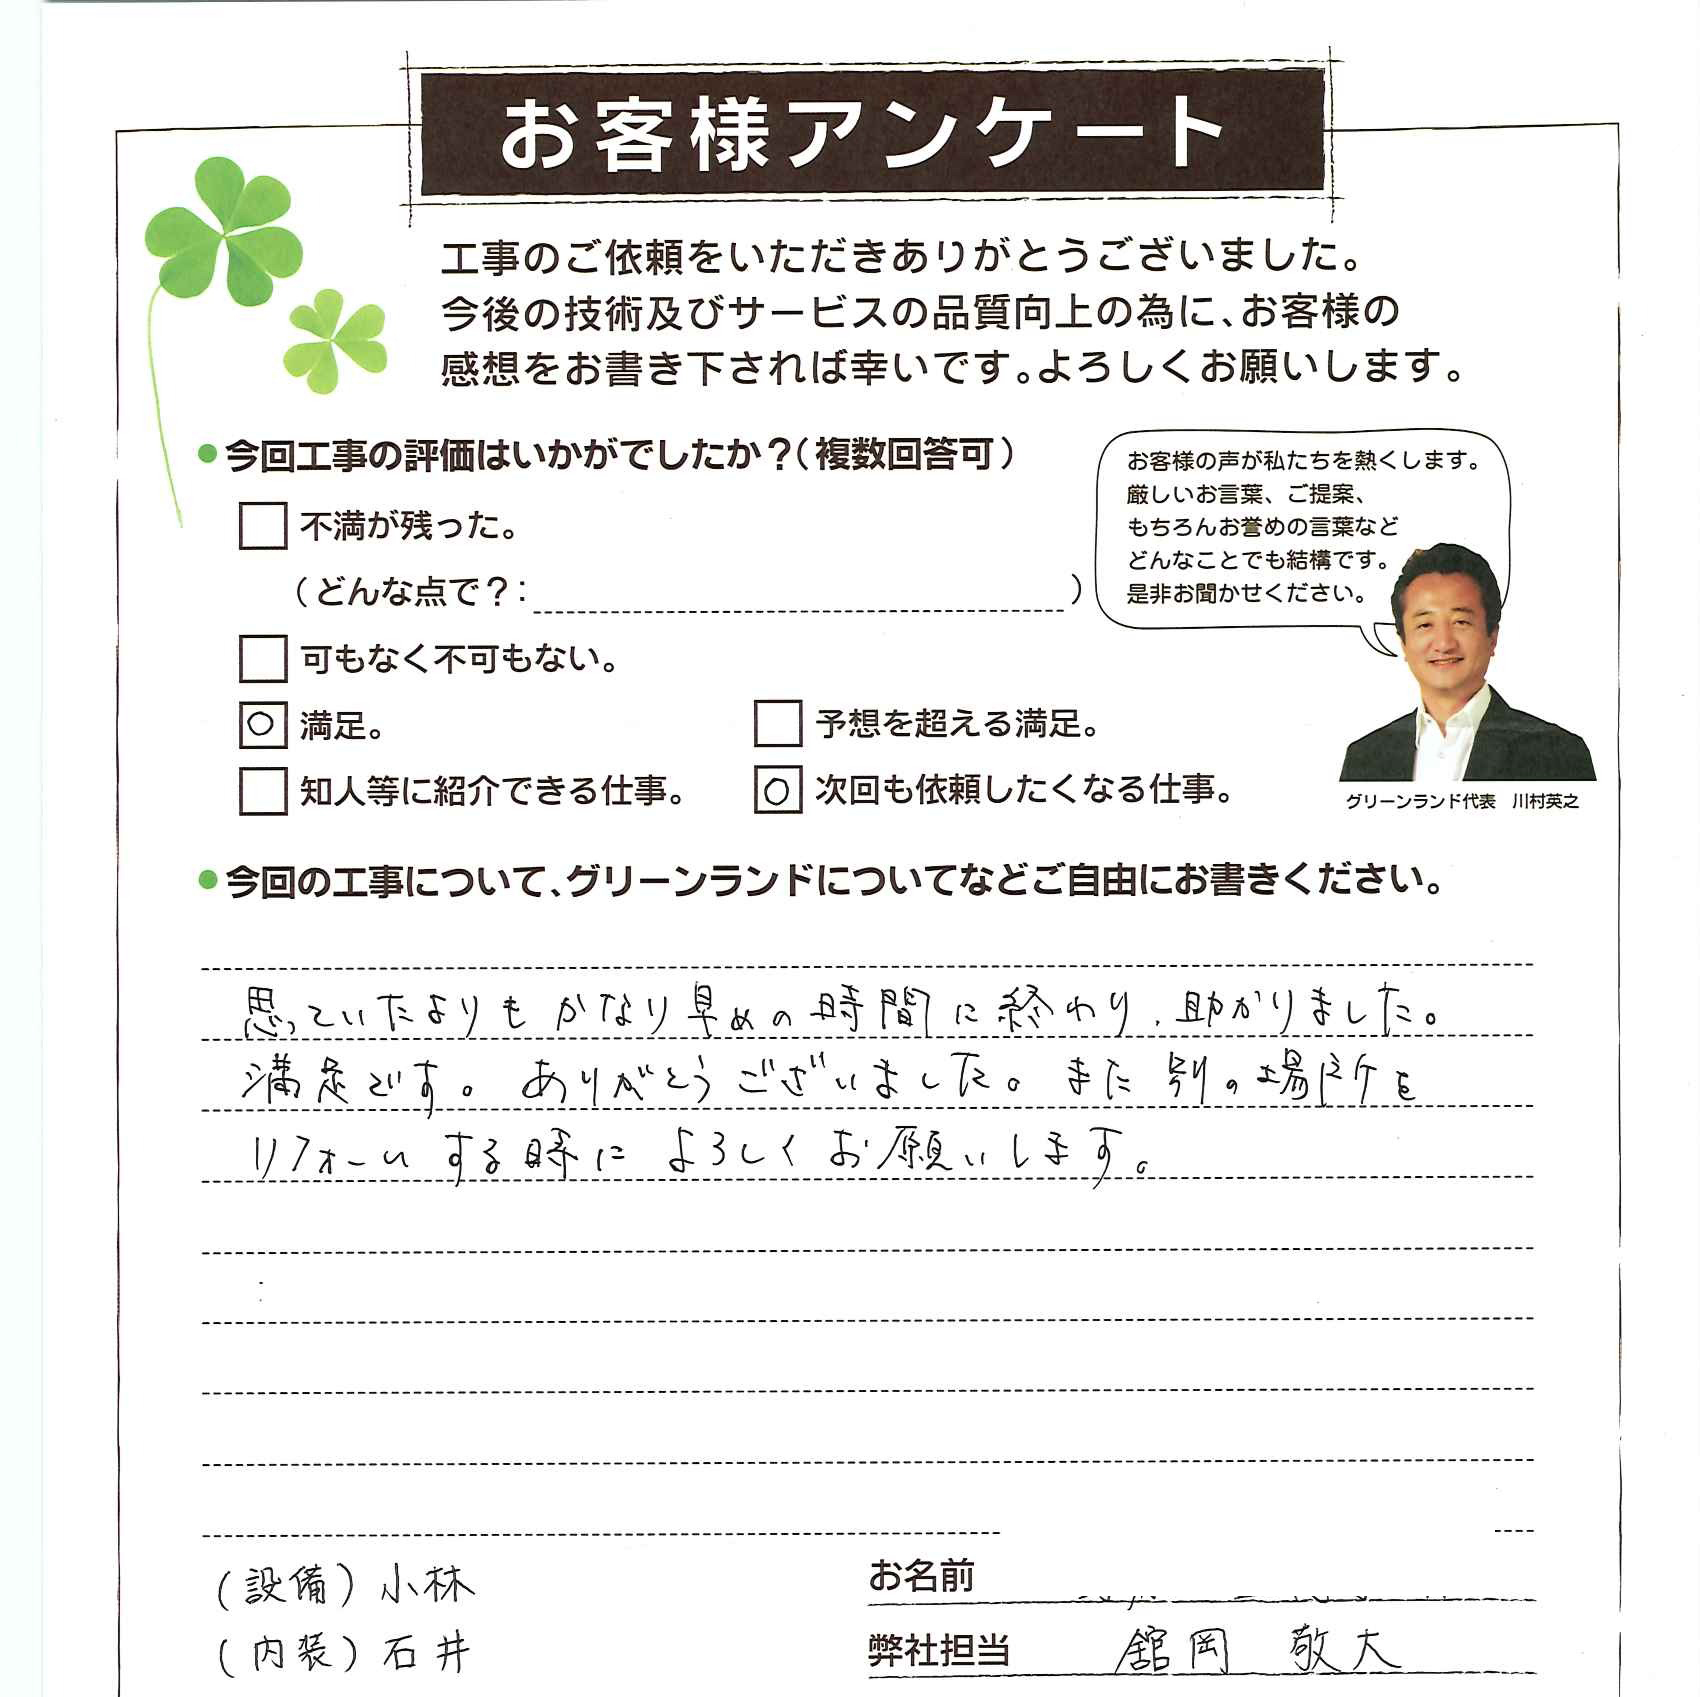 お客様アンケート
工事のご依頼をいただきありがとうございました。
今後の技術及びサービスの品質向上の為に、お客様の
感想をお書き下されば幸いです。よろしくお願いします。
●今回工事の評価はいかがでしたか？(複数回答可)
不満が残った。
(どんな点で？: )
可もなく不可もない。
○ 満足。
予想を超える満足。
知人等に紹介できる仕事。
○ 次回も依頼したくなる仕事。
お客様の声が私たちを熱くします。
厳しいお言葉、ご提案、
もちろんお誉めの言葉など
どんなことでも結構です。
是非お聞かせください。
グリーンランド代表 川村英之
●今回の工事について、グリーンランドについてなどご自由にお書きください。
思っていたよりもかなり早めの時間に終わり、助かりました。
満足です。ありがとうございました。また別の場所を
リフォームする時によろしくお願いします。
(設備) 小林
(内装) 石井
お名前
弊社担当 舘岡 敬大